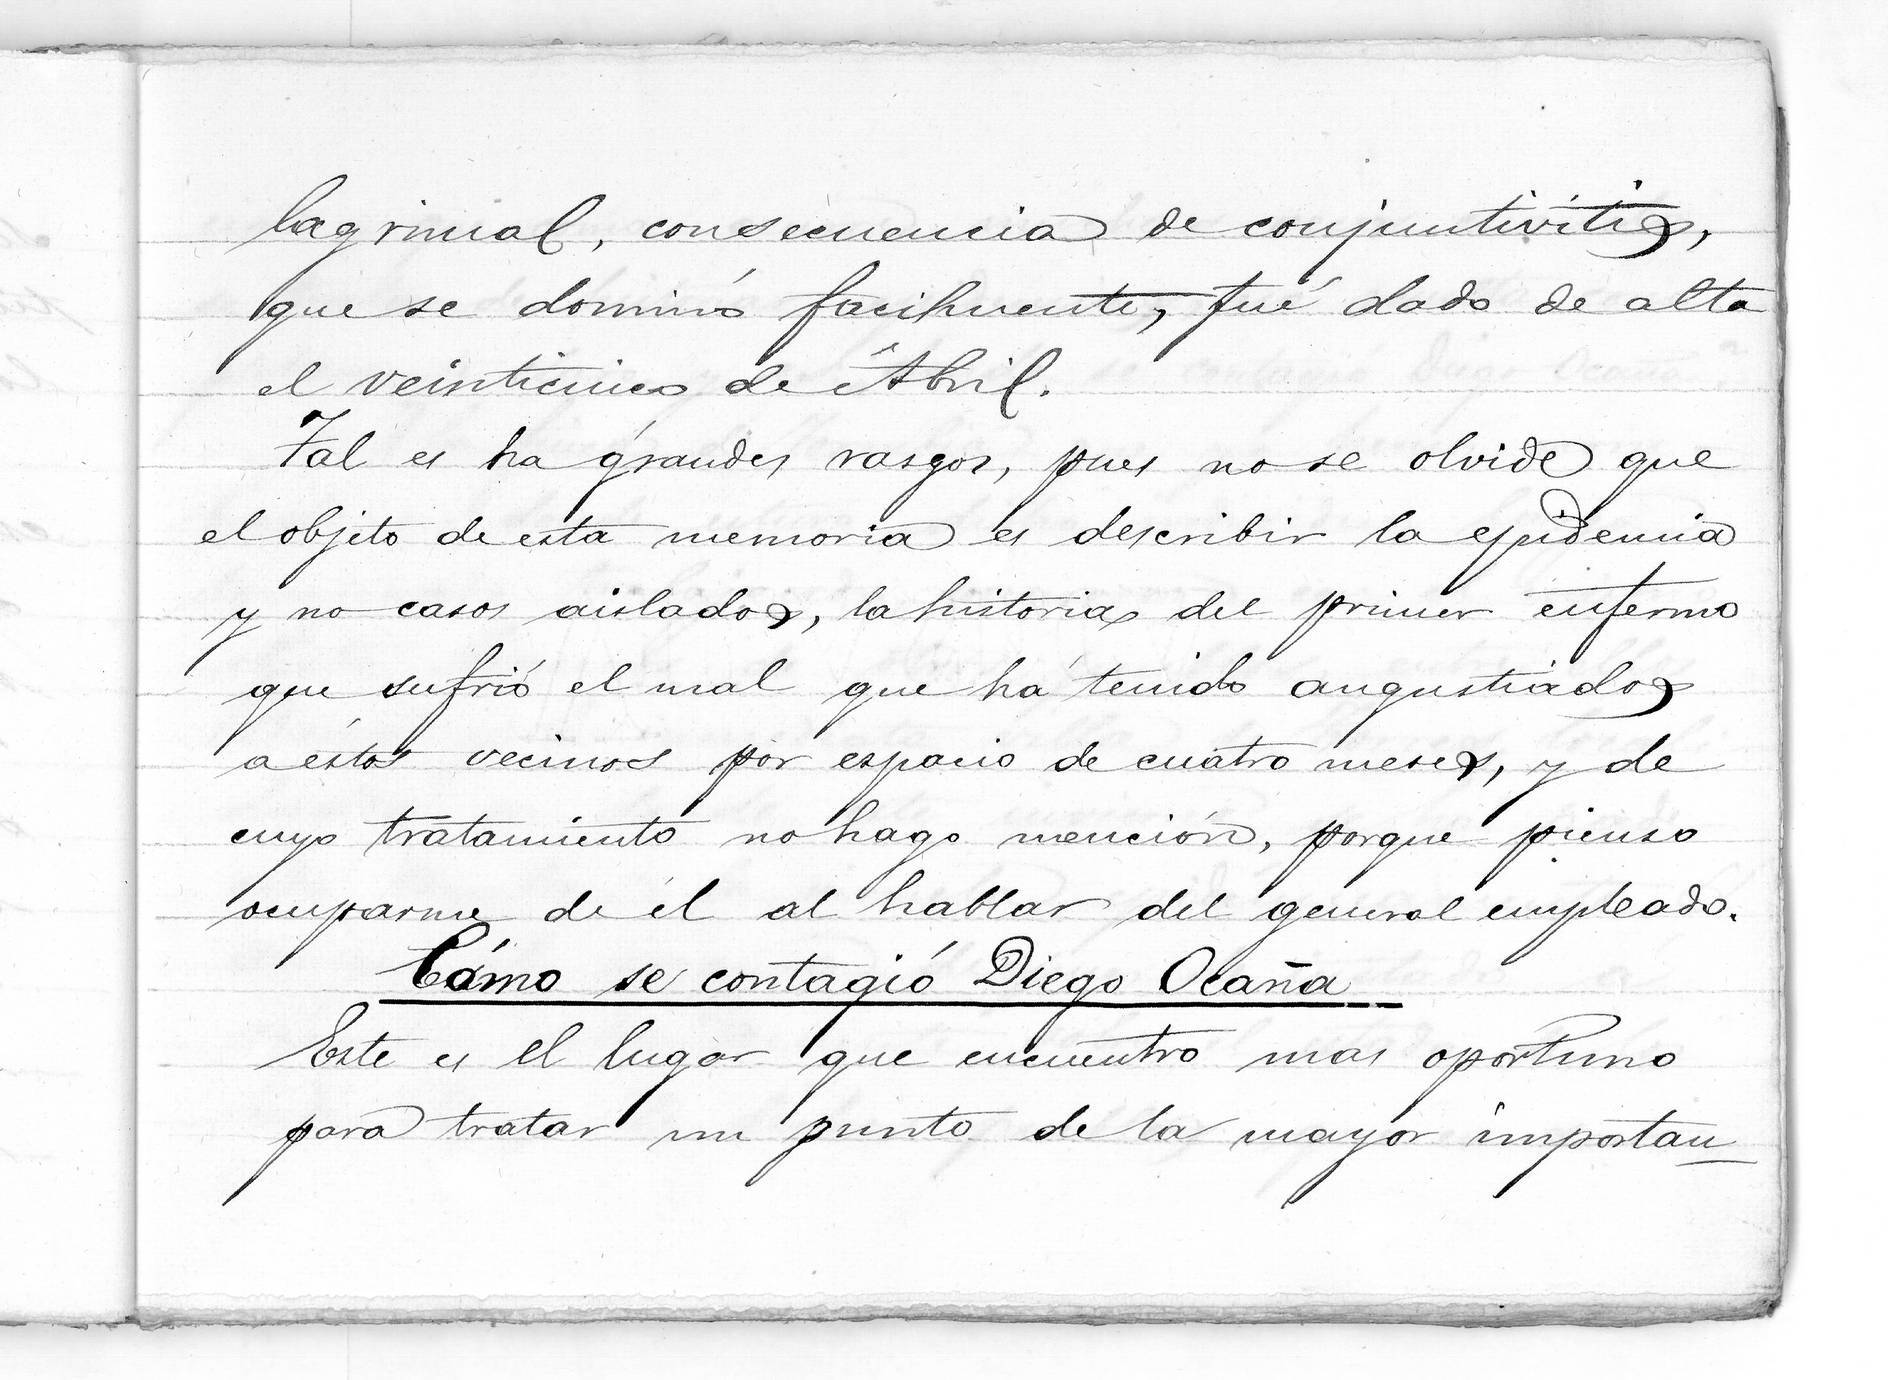 lagrimal, consecuencia de conjuntivitis,
que se dominó facilmente, fué dado de alta
el veinticinco de Abril.
Tal es ha grandes rasgos, pues no se olvide que
el objeto de esta memoria es describir la epidemia
y no casos aislados, la historia del primer enfermo
que sufrió el mal que há tenido angustiados
a éstos vecinos por espacio de cuatro meses, y de
cuyo tratamiento no hago mención, porque pienso
ocuparme de él al hablar del general empleado.
Cómo se contagió Diego Ocaña
Este es el lugar que encuentro mas oportuno
para tratar un punto de la mayor importan